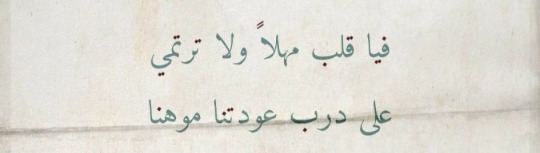 فيا قلب مهلاً ولا ترتمي
على درب عودتنا موهنا